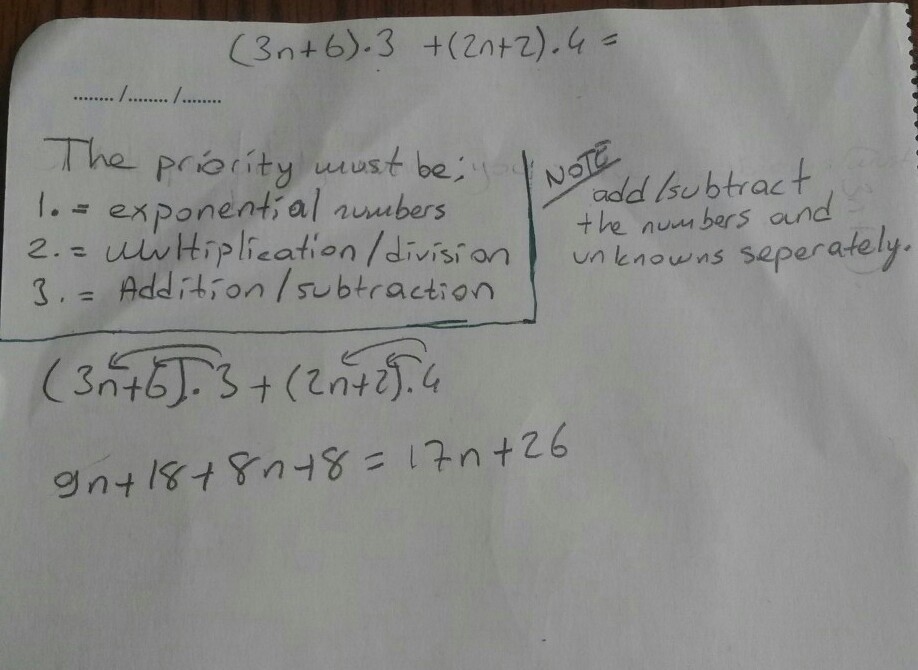 (3n+6).3 +(2n+2).4 =
......../......../........
The priority must be;
1. = exponential numbers
2. = Multiplication/division
3. = Addition/subtraction
NOTE
add/subtract
the numbers and
unknowns seperately.
(3n+6).3+(2n+2).4
9n+18+8n+8=17n+26